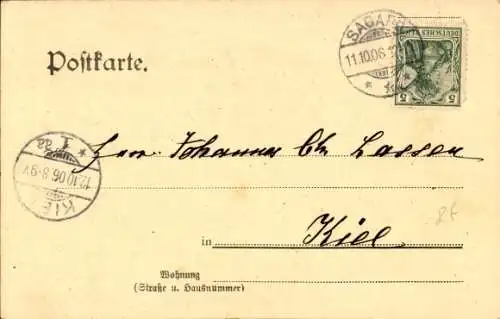 SAGARD
11.10.06
Postkarte.
DEUTSCHES REICH
5 5
KIEL
12.10.06.8-9V
* 1 aa
Herrn Johannes Chr. Lassen
in Kiel
Wohnung
(Straße u. Hausnummer)